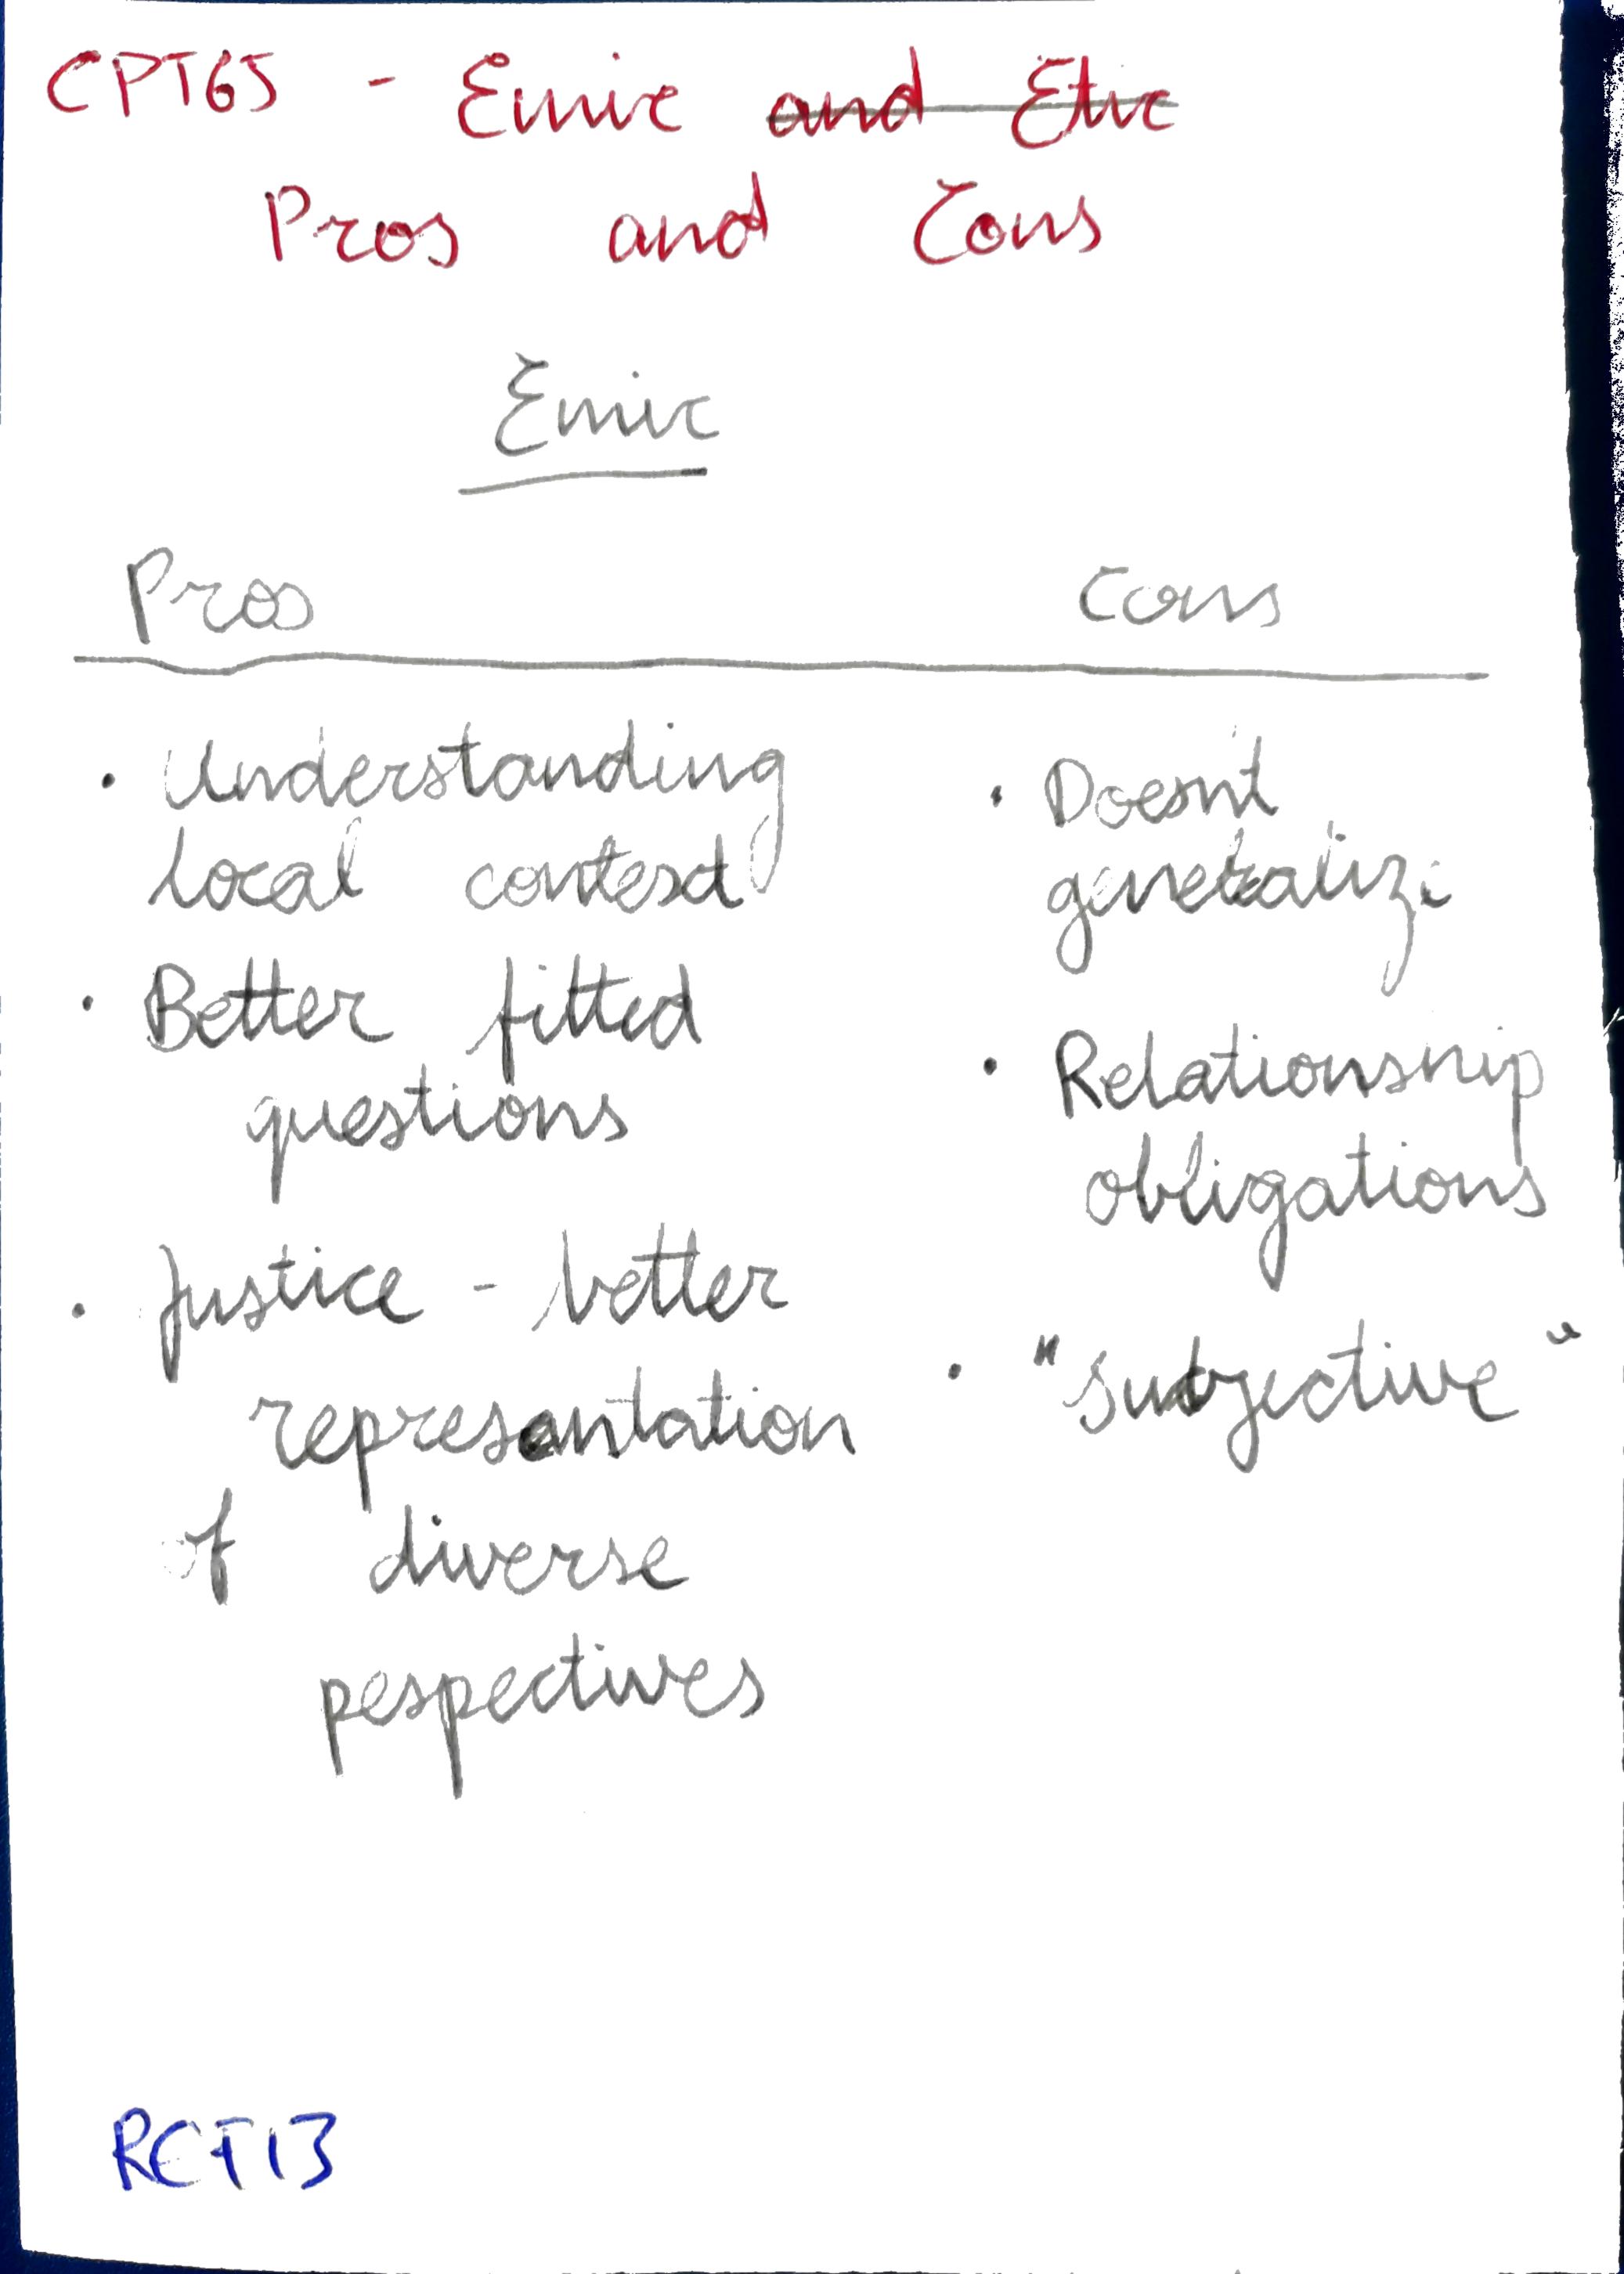 CPT65 - Emic and Etic
Pros and Cons
Emic
Pros
Cons
• Understanding
local context
• Better fitted
questions
• Justice - better
representation
of diverse
pespectives
• Doesnt
generalize
• Relationship
obligations
• "subjective"
RCT13